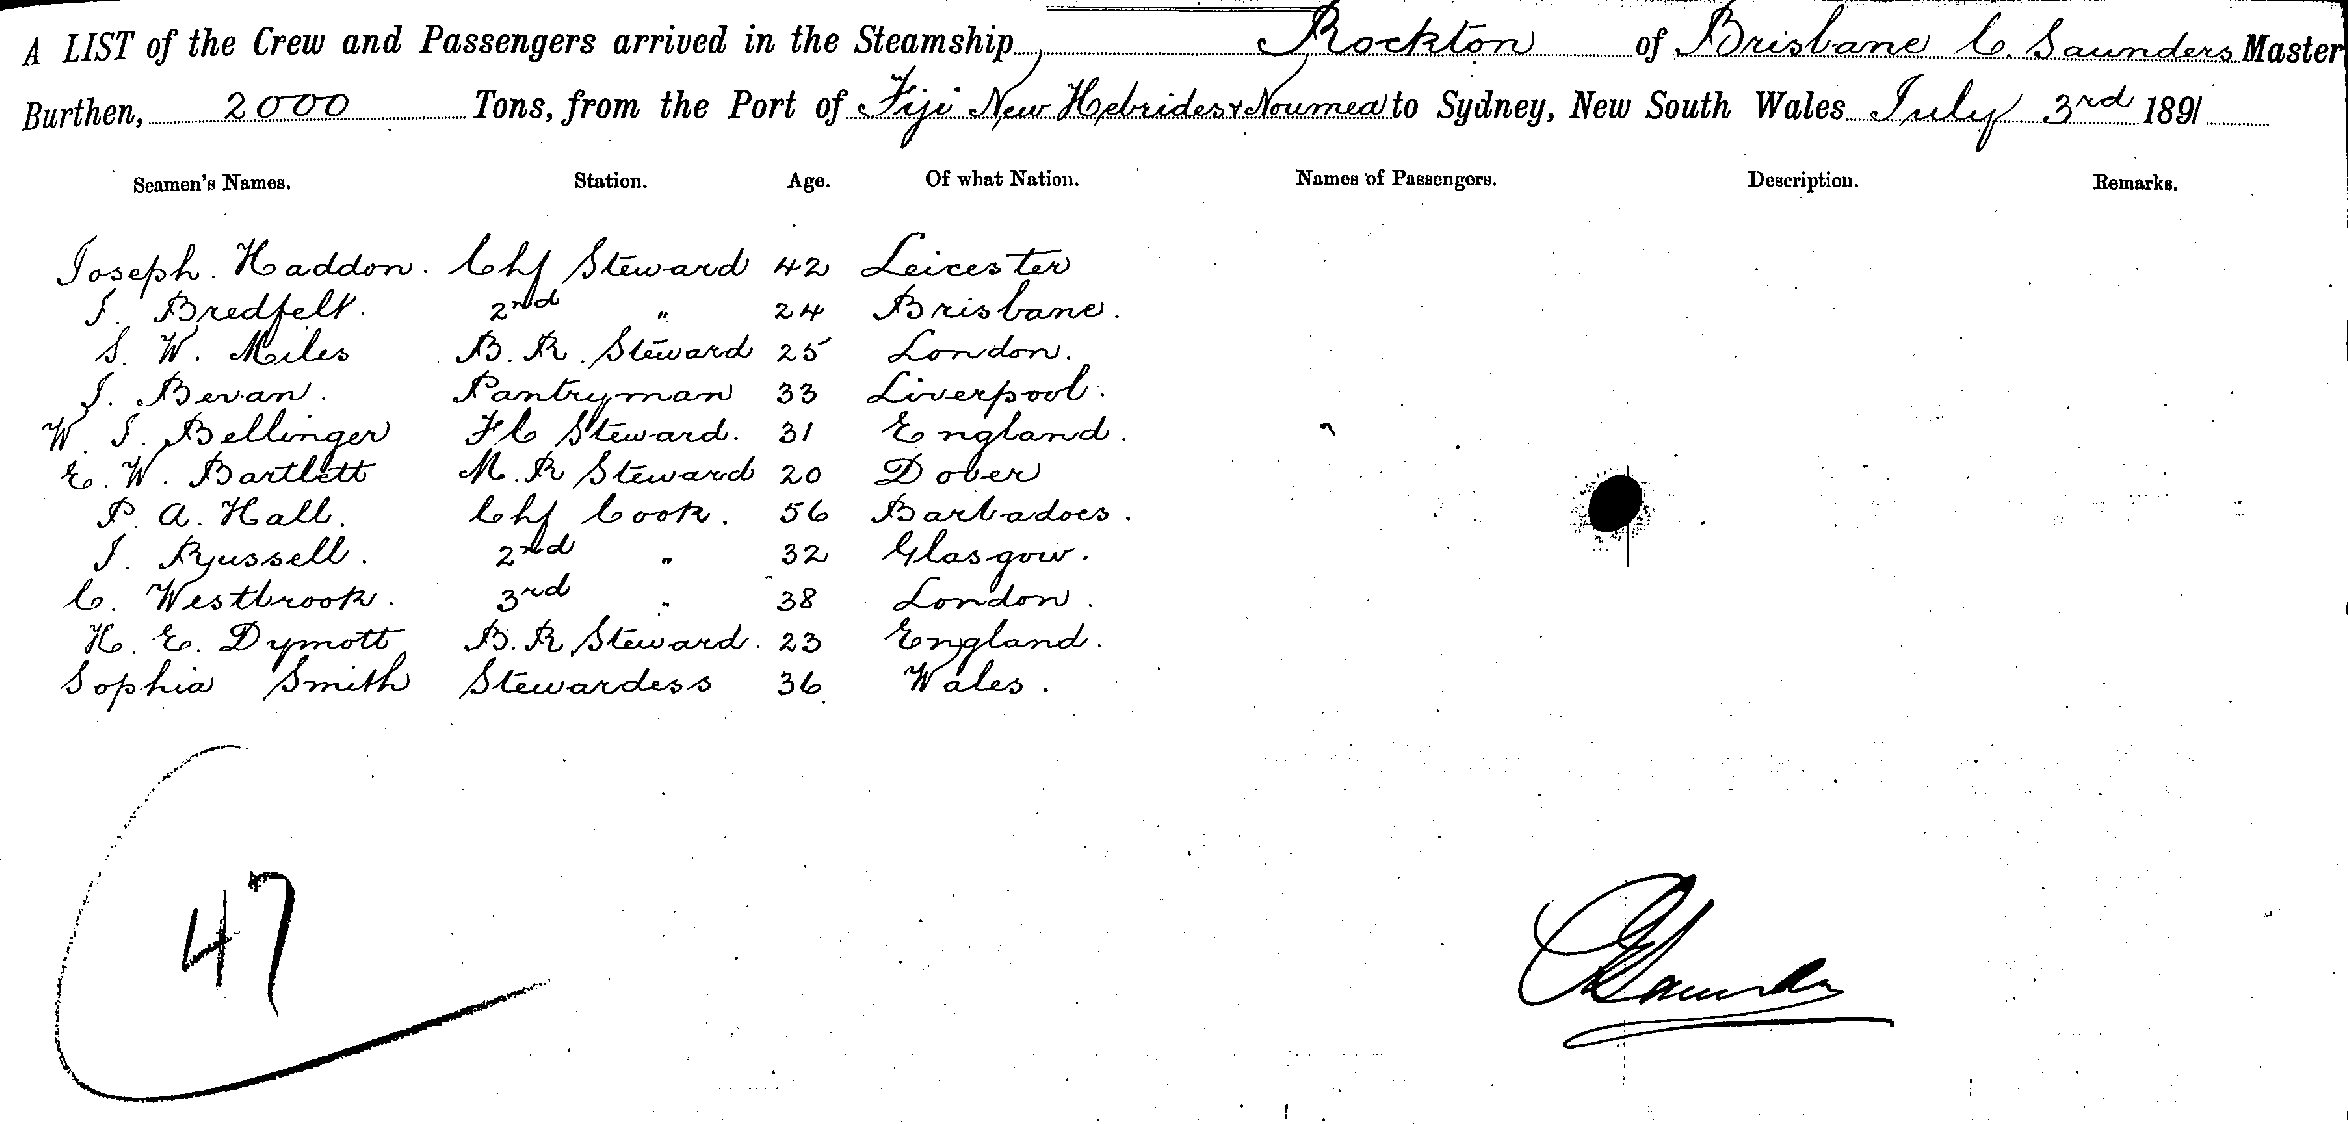 A LIST of the Crew and Passengers arrived in the Steamship Rockton of Brisbane C. Saunders Master
Burthen, 2000 Tons, from the Port of Fiji New Hebrides & Noumea to Sydney, New South Wales July 3rd 1891
Seamen's Names. Station. Age. Of what Nation. Names of Passengers. Description. Remarks.
Joseph. Haddon. Chf Steward 42 Leicester
J. Bredfelt. 2nd " 24 Brisbane.
S. W. Miles B. R. Steward 25 London.
J. Bevan. Pantryman 33 Liverpool.
W J. Bellinger F C Steward. 31 England.
E. W. Bartlett M. R Steward 20 Dover
P. A. Hall. Chf Cook. 56 Barbadoes.
J. Russell. 2nd " 32 Glasgow.
C. Westbrook. 3rd " 38 London.
H. E. Dymott B. R Steward. 23 England.
Sophia Smith Stewardess 36 Wales.
47
Saunders